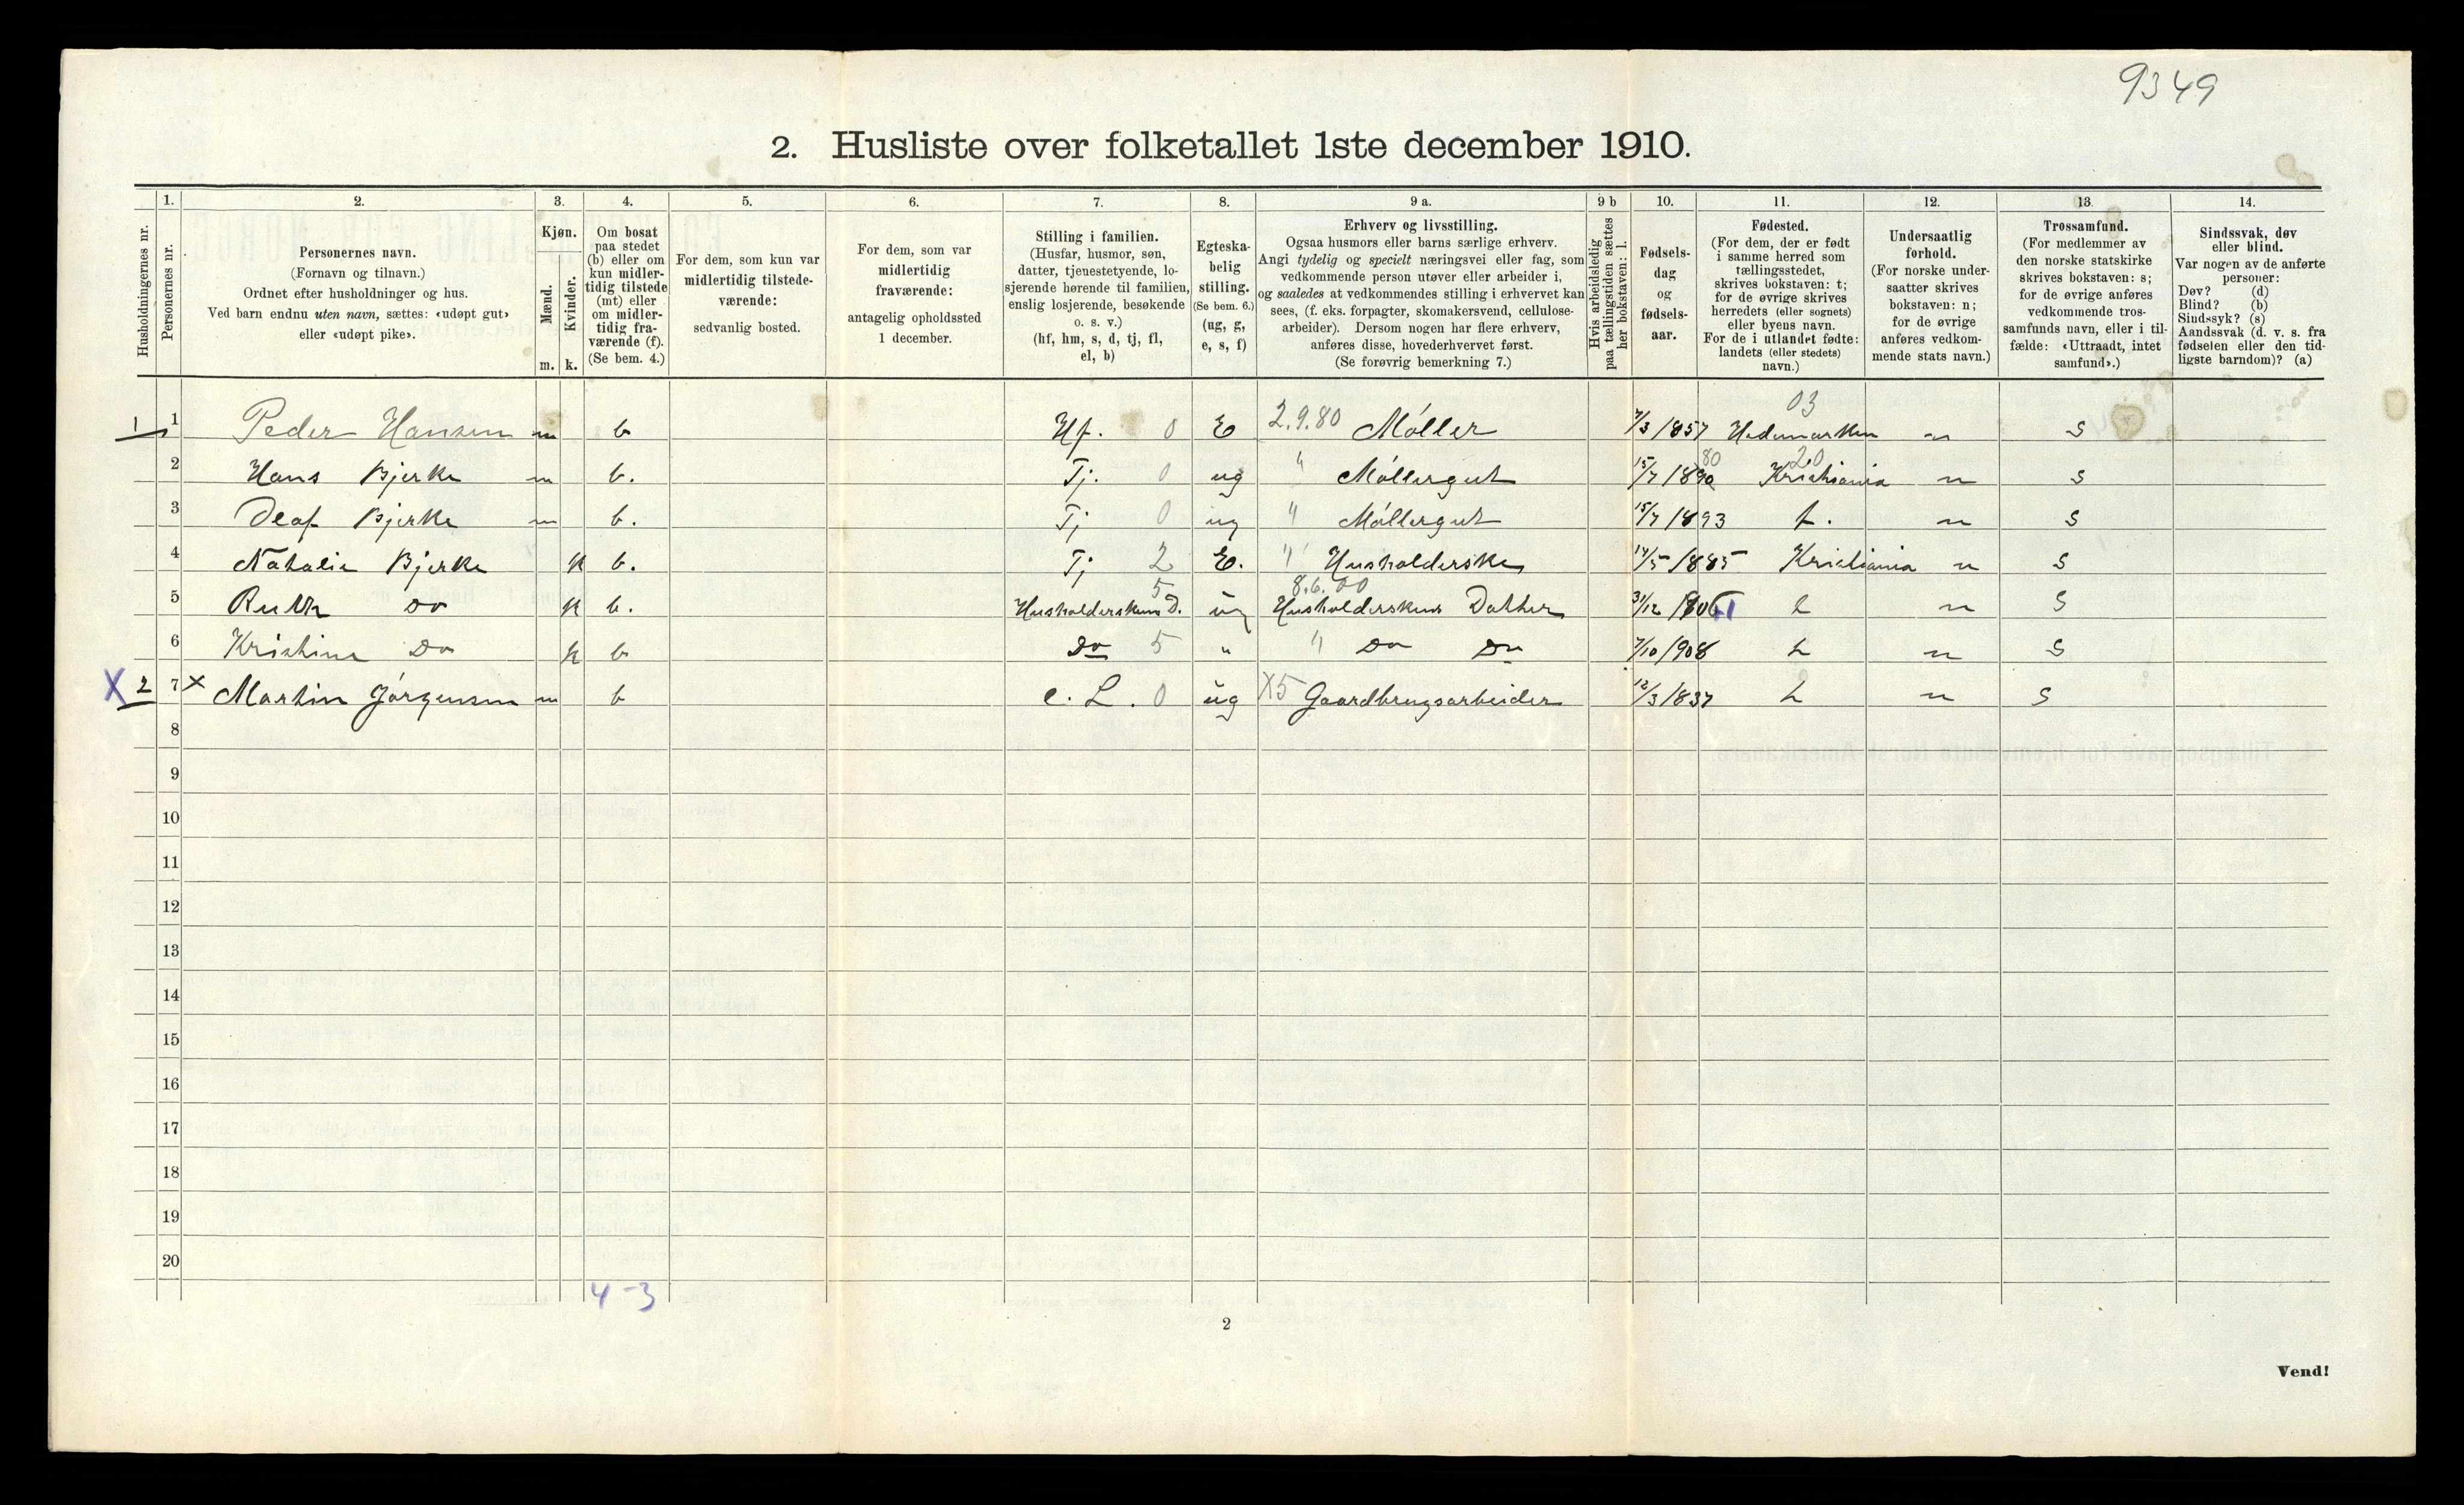 9349
2. Husliste over folketallet 1ste december 1910.
Husholdningernes nr.
1.
Personernes nr.
2.
Personernes navn.
(Fornavn og tilnavn.)
Ordnet efter husholdninger og hus.
Ved barn endnu uten navn, sættes: «udøpt gut»
eller «udøpt pike».
3.
Kjøn.
Mænd.
m.
Kvinder.
k.
4.
Om bosat
paa stedet
(b) eller om
kun midler-
tidig tilstede
(mt) eller
om midler-
tidig fra-
værende (f).
(Se bem. 4.)
5.
For dem, som kun var
midlertidig tilstede-
værende:
sedvanlig bosted.
6.
For dem, som var
midlertidig
fraværende:
antagelig opholdssted
1 december.
7.
Stilling i familien.
(Husfar, husmor, søn,
datter, tjenestetyende, lo-
sjerende hørende til familien,
enslig losjerende, besøkende
o. s. v.)
(hf, hm, s, d, tj, fl,
el, b)
8.
Egteska-
belig
stilling.
(Se bem. 6.)
(ug, g,
e, s, f)
9 a.
Erhverv og livsstilling.
Ogsaa husmors eller barns særlige erhverv.
Angi tydelig og specielt næringsvei eller fag, som
vedkommende person utøver eller arbeider i,
og saaledes at vedkommendes stilling i erhvervet kan
sees, (f. eks. forpagter, skomakersvend, cellulose-
arbeider). Dersom nogen har flere erhverv,
anføres disse, hovederhvervet først.
(Se forøvrig bemerkning 7.)
9 b
Hvis arbeidsledig
paa tællingstiden sættes
her bokstaven: l.
10.
Fødsels-
dag
og
fødsels-
aar.
11.
Fødested.
(For dem, der er født
i samme herred som
tællingsstedet,
skrives bokstaven: t;
for de øvrige skrives
herredets (eller sognets)
eller byens navn.
For de i utlandet fødte:
landets (eller stedets)
navn.)
12.
Undersaatlig
forhold.
(For norske under-
saatter skrives
bokstaven: n;
for de øvrige
anføres vedkom-
mende stats navn.)
13.
Trossamfund.
(For medlemmer av
den norske statskirke
skrives bokstaven: s;
for de øvrige anføres
vedkommende tros-
samfunds navn, eller i til-
fælde: «Uttraadt, intet
samfund».)
14.
Sindssvak, døv
eller blind.
Var nogen av de anførte
personer:
Døv? (d)
Blind? (b)
Sindssyk? (s)
Aandssvak (d. v. s. fra
fødselen eller den tid-
ligste barndom)? (a)
03
1 1 Peder Hansen m b Hf. 0 E 2.9.80 Møller 7/3 1857 Hedemarken n s
80 20
2 Hans Bjerke m b. Tj. 0 ug " Møllergut 15/7 1890 Kristiania n s
3 Olaf Bjerke m b. Tj 0 ug " Møllergut 15/7 1893 t. n s
4 Nathalie Bjerke k b. Tj 2 E. " Husholderske 14/5 1885 Kristiania n s
5 8.6.00
5 Ruth Do k b. Husholderskens D. ug Husholderskens Datter 31/12 t n s
6 Kristine Do k b Do 5 " " Do Do 7/10 1908 t n s
X 2 7 x Martin Jørgensen m b e. L. 0 ug X5 Gaardbrugsarbeider 12/3 1837 t n s
8
9
10
11
12
13
14
15
16
17
18
19
20
4-3
2
Vend!